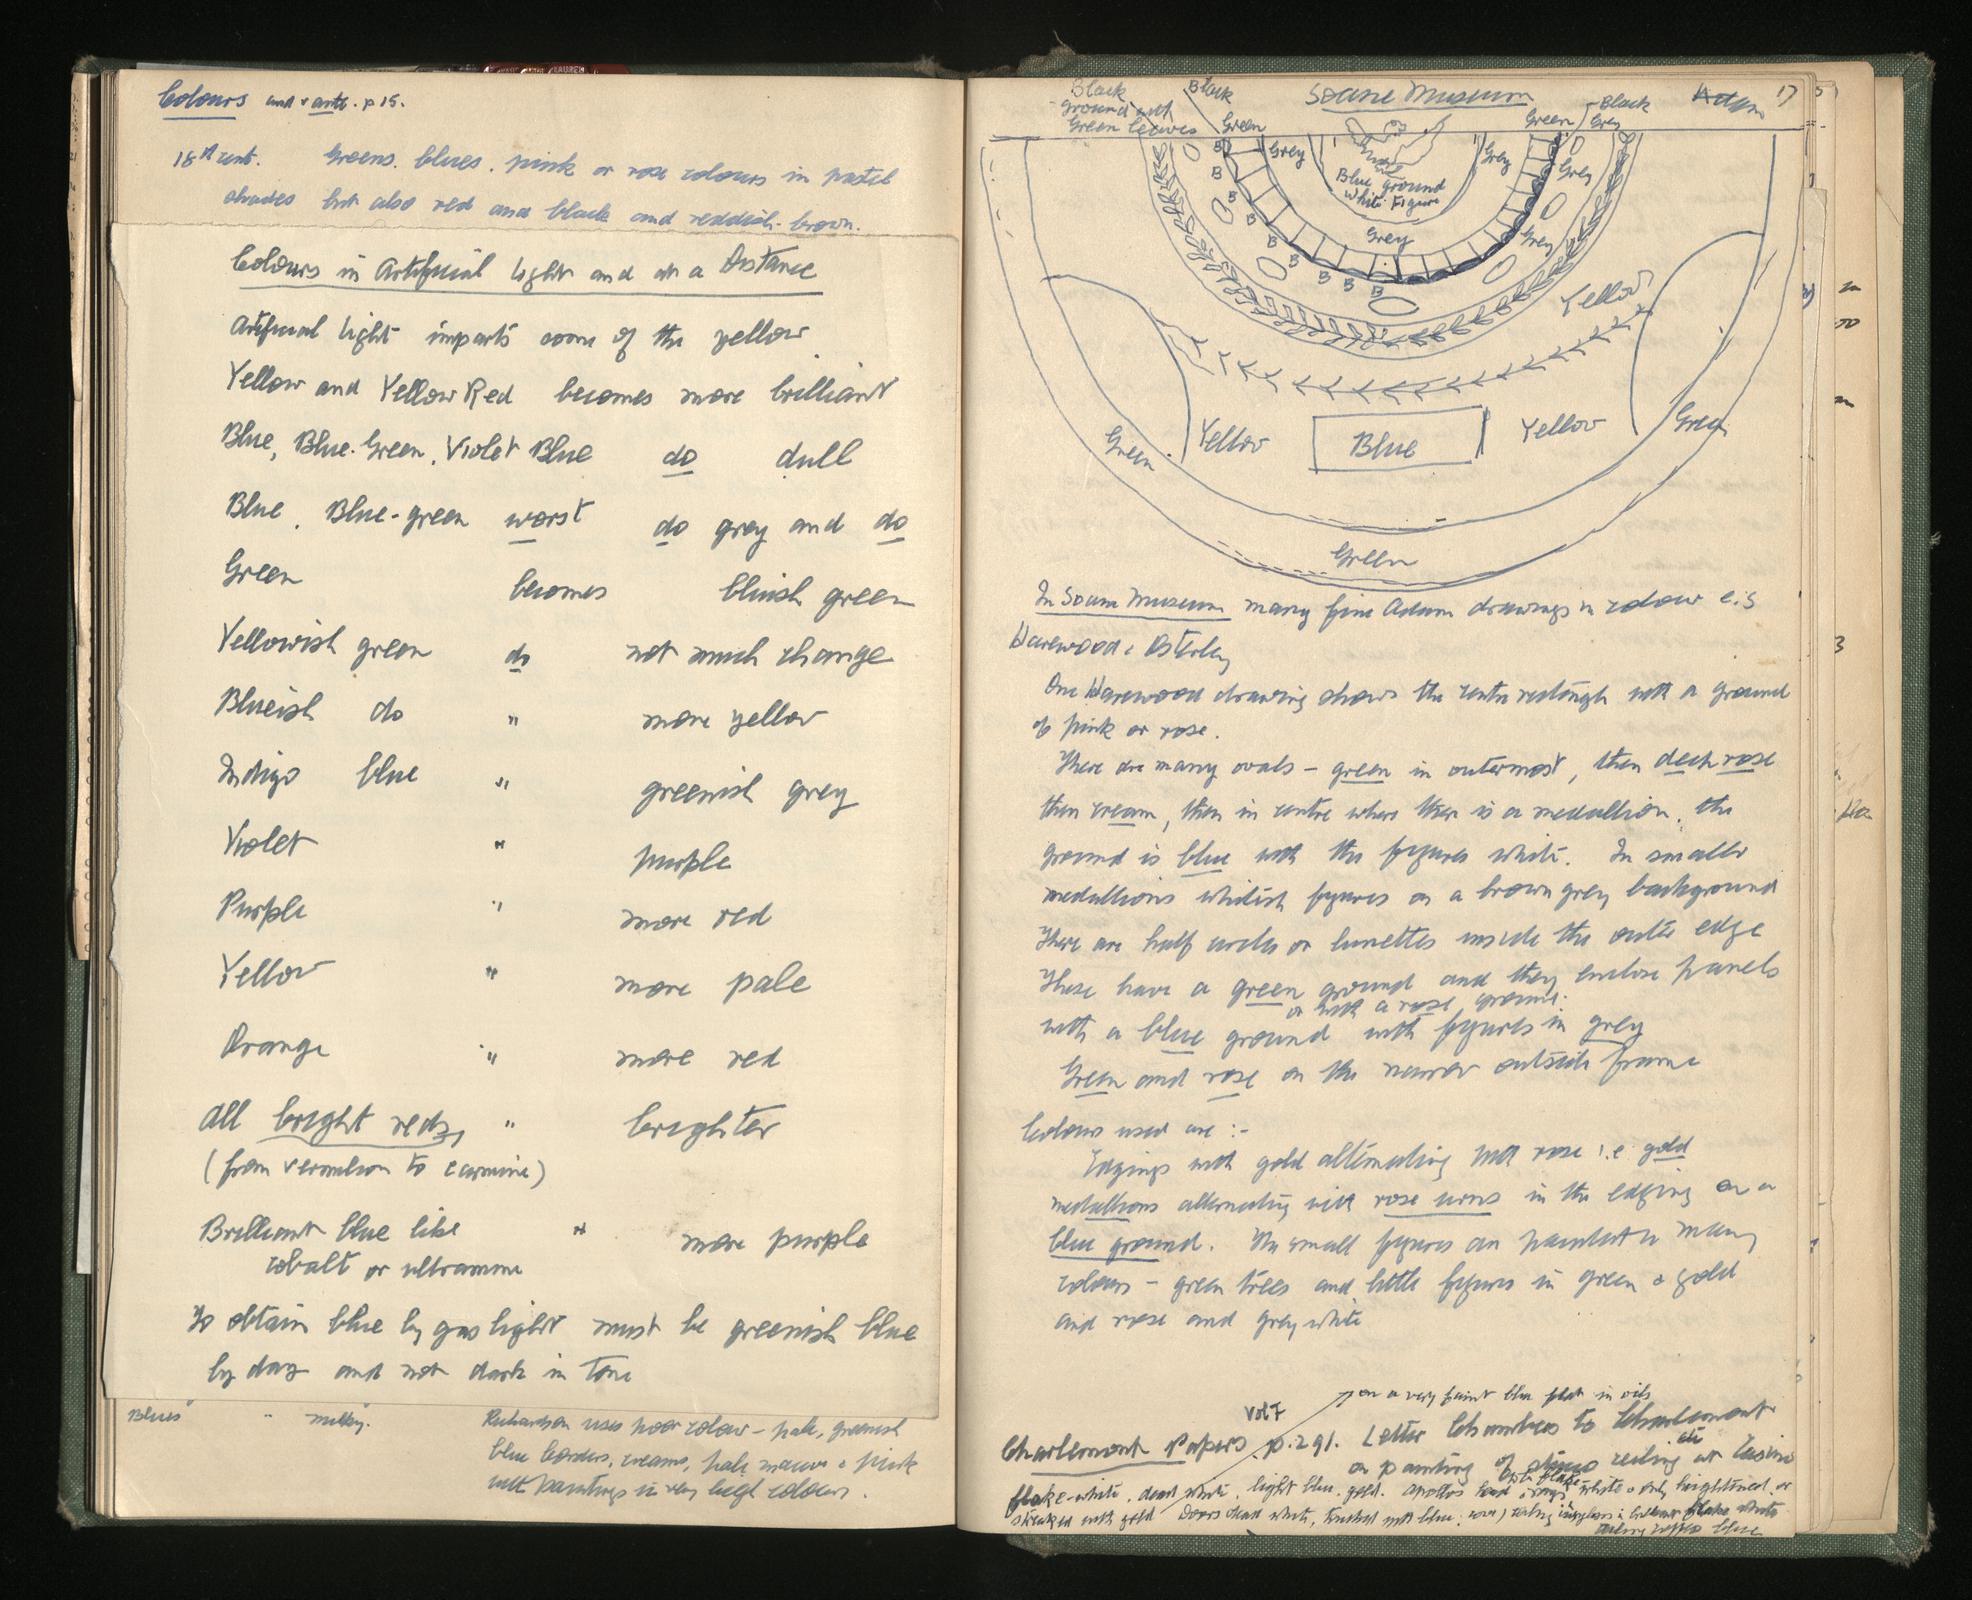 Colours and v ante. p 15.
18th cent. Greens. blues. pink or rose colours in pastel
shades but also red and black and reddish-brown.
Colours in Artificial Light and at a Distance
Artificial light imparts some of the yellow
Yellow and Yellow Red becomes more brilliant
Blue, Blue-Green, Violet Blue do dull
Blue, Blue-green worst do grey and do
Green becomes bluish green
Yellowish green do not much change
Blueish do " more yellow
Indigo blue " greenish grey
Violet " purple
Purple " more red
Yellow " more pale
Orange " more red
All bright reds, " brighter
(from vermilion to carmine)
Brilliant blue like " more purple
cobalt or ultramine
To obtain blue by gas light must be greenish blue
by day and not dark in tone
Blues " " milky.
Richardson uses poor colour - pale, greenish
blue borders, creams, pale mauve & pink
with paintings in very high colours.
Soane Museum
Adam 17
Black
ground with
Green leaves
Black
Green
Green
Black
Grey
Grey
Grey
Grey
Blue ground
White Figure
Grey
Grey
B
B
B
B
B
B
B
B
B
Yellow
Green
Yellow
Blue
Yellow
Green
Green
In Soane Museum many fine Adam drawings in colour e.g
Harewood & Osterley
One Harewood drawing shows the centre rectangle with a ground
of pink or rose.
There are many ovals - green in outermost, then deep rose
then cream, then in centre where there is a medallion, the
ground is blue with the figures white. In smaller
medallions whitish figures on a brown grey background
There are half circles or lunettes inside the outer edge
These have a green ground and they enclose panels
or with a rose ground.
with a blue ground with figures in grey
Green and rose on the narrow outside frame
Colours used are :-
Edgings with gold alternating with rose i.e. gold
medallions alternating with rose urns in the edging on a
blue ground. The small figures are painted in many
colours - green trees and little figures in green & gold
and rose and grey white
on a very faint blue flat in oils
Vol I
Charlemont Papers p.291. Letter Chambers to Charlemont
on painting of ceiling at Casino
flake-white, dead white, light blue, gold. Apollos head & rays white & only heightened or
streaked with gold Doors dead white, touched with blue;